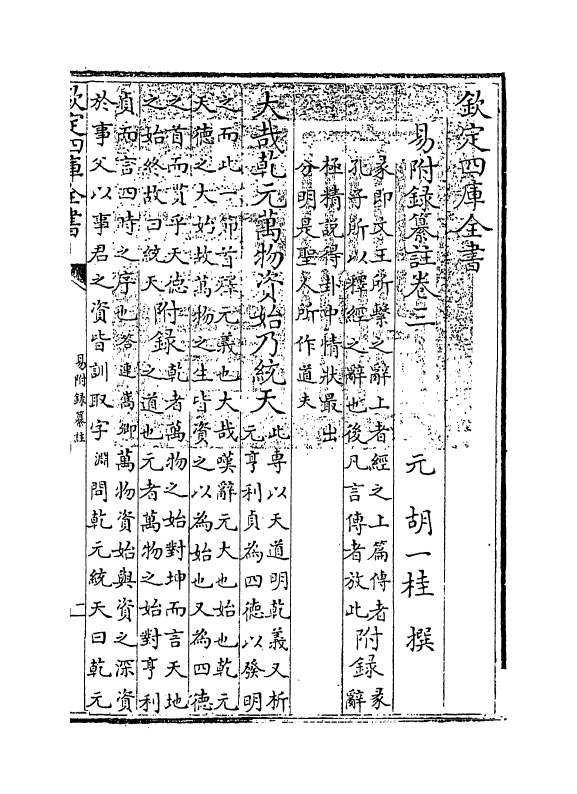 欽定四庫全書
易附録纂註卷三　元　胡一桂　撰
彖即文王所繫之辭上者經之上篇傳者
孔子所以釋經之辭也後凡言傳者放此
附録
彖
辭
極精說得卦中情狀最出
分明是聖人所作道夫
大哉乾元萬物資始乃統天
此專以天道明乾義又析
元亨利貞為四德以發明
之而此一節首釋元義也大哉嘆辭元大也始也乾元
天德之大始故萬物之生皆資之以為始也又為四德
之首而貫乎天德
之始終故曰統天
附録
乾者萬物之始對坤而言天地
之道也元者萬物之始對亨利
貞而言四時之序也答連嵩卿萬物資始與資之深資
於事父以事君之資皆訓取字淵問乾元統天曰乾元
欽定四庫全書
易附録纂註